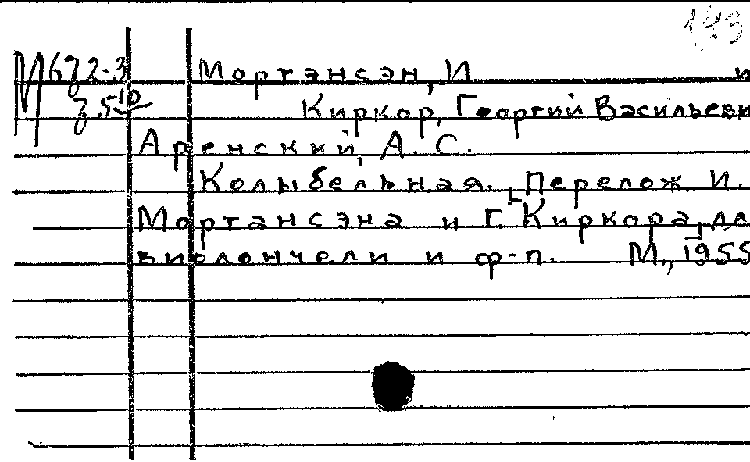 149
М672-3 Мортэнсэн, И. и
3.510 Киркор, Георгий Васильеви
Аренский, А. С.
Колыбельная. Перелож И.
Мортэнсэна и Г. Киркора дл
виолончели и ф-п. М., 1955